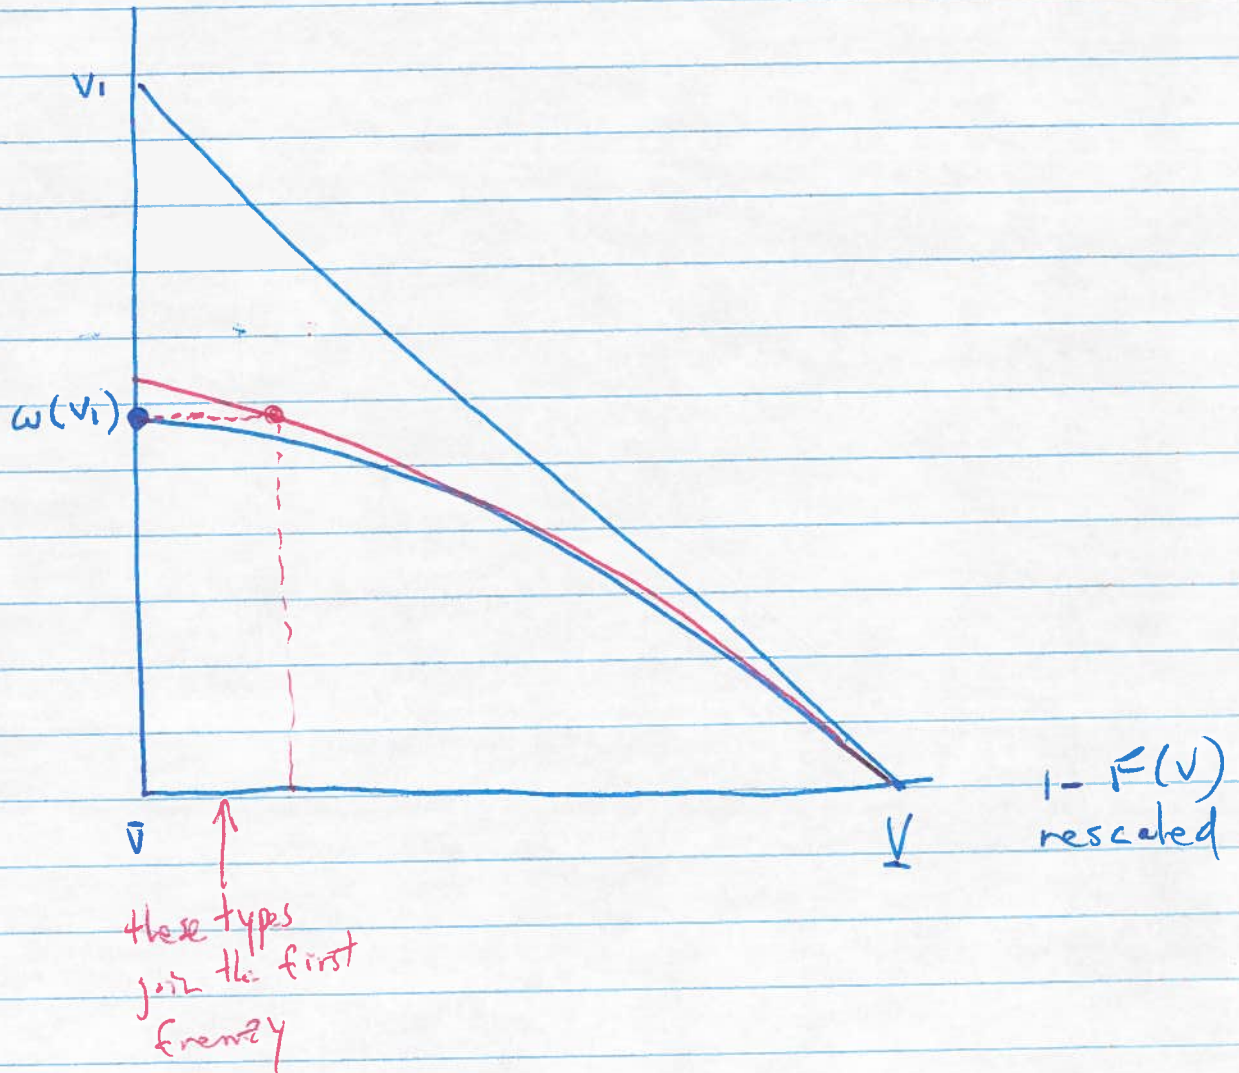 V1
ω(V1)
V̄
V̲
1- F(V)
rescaled
these types
join the first
frenzy